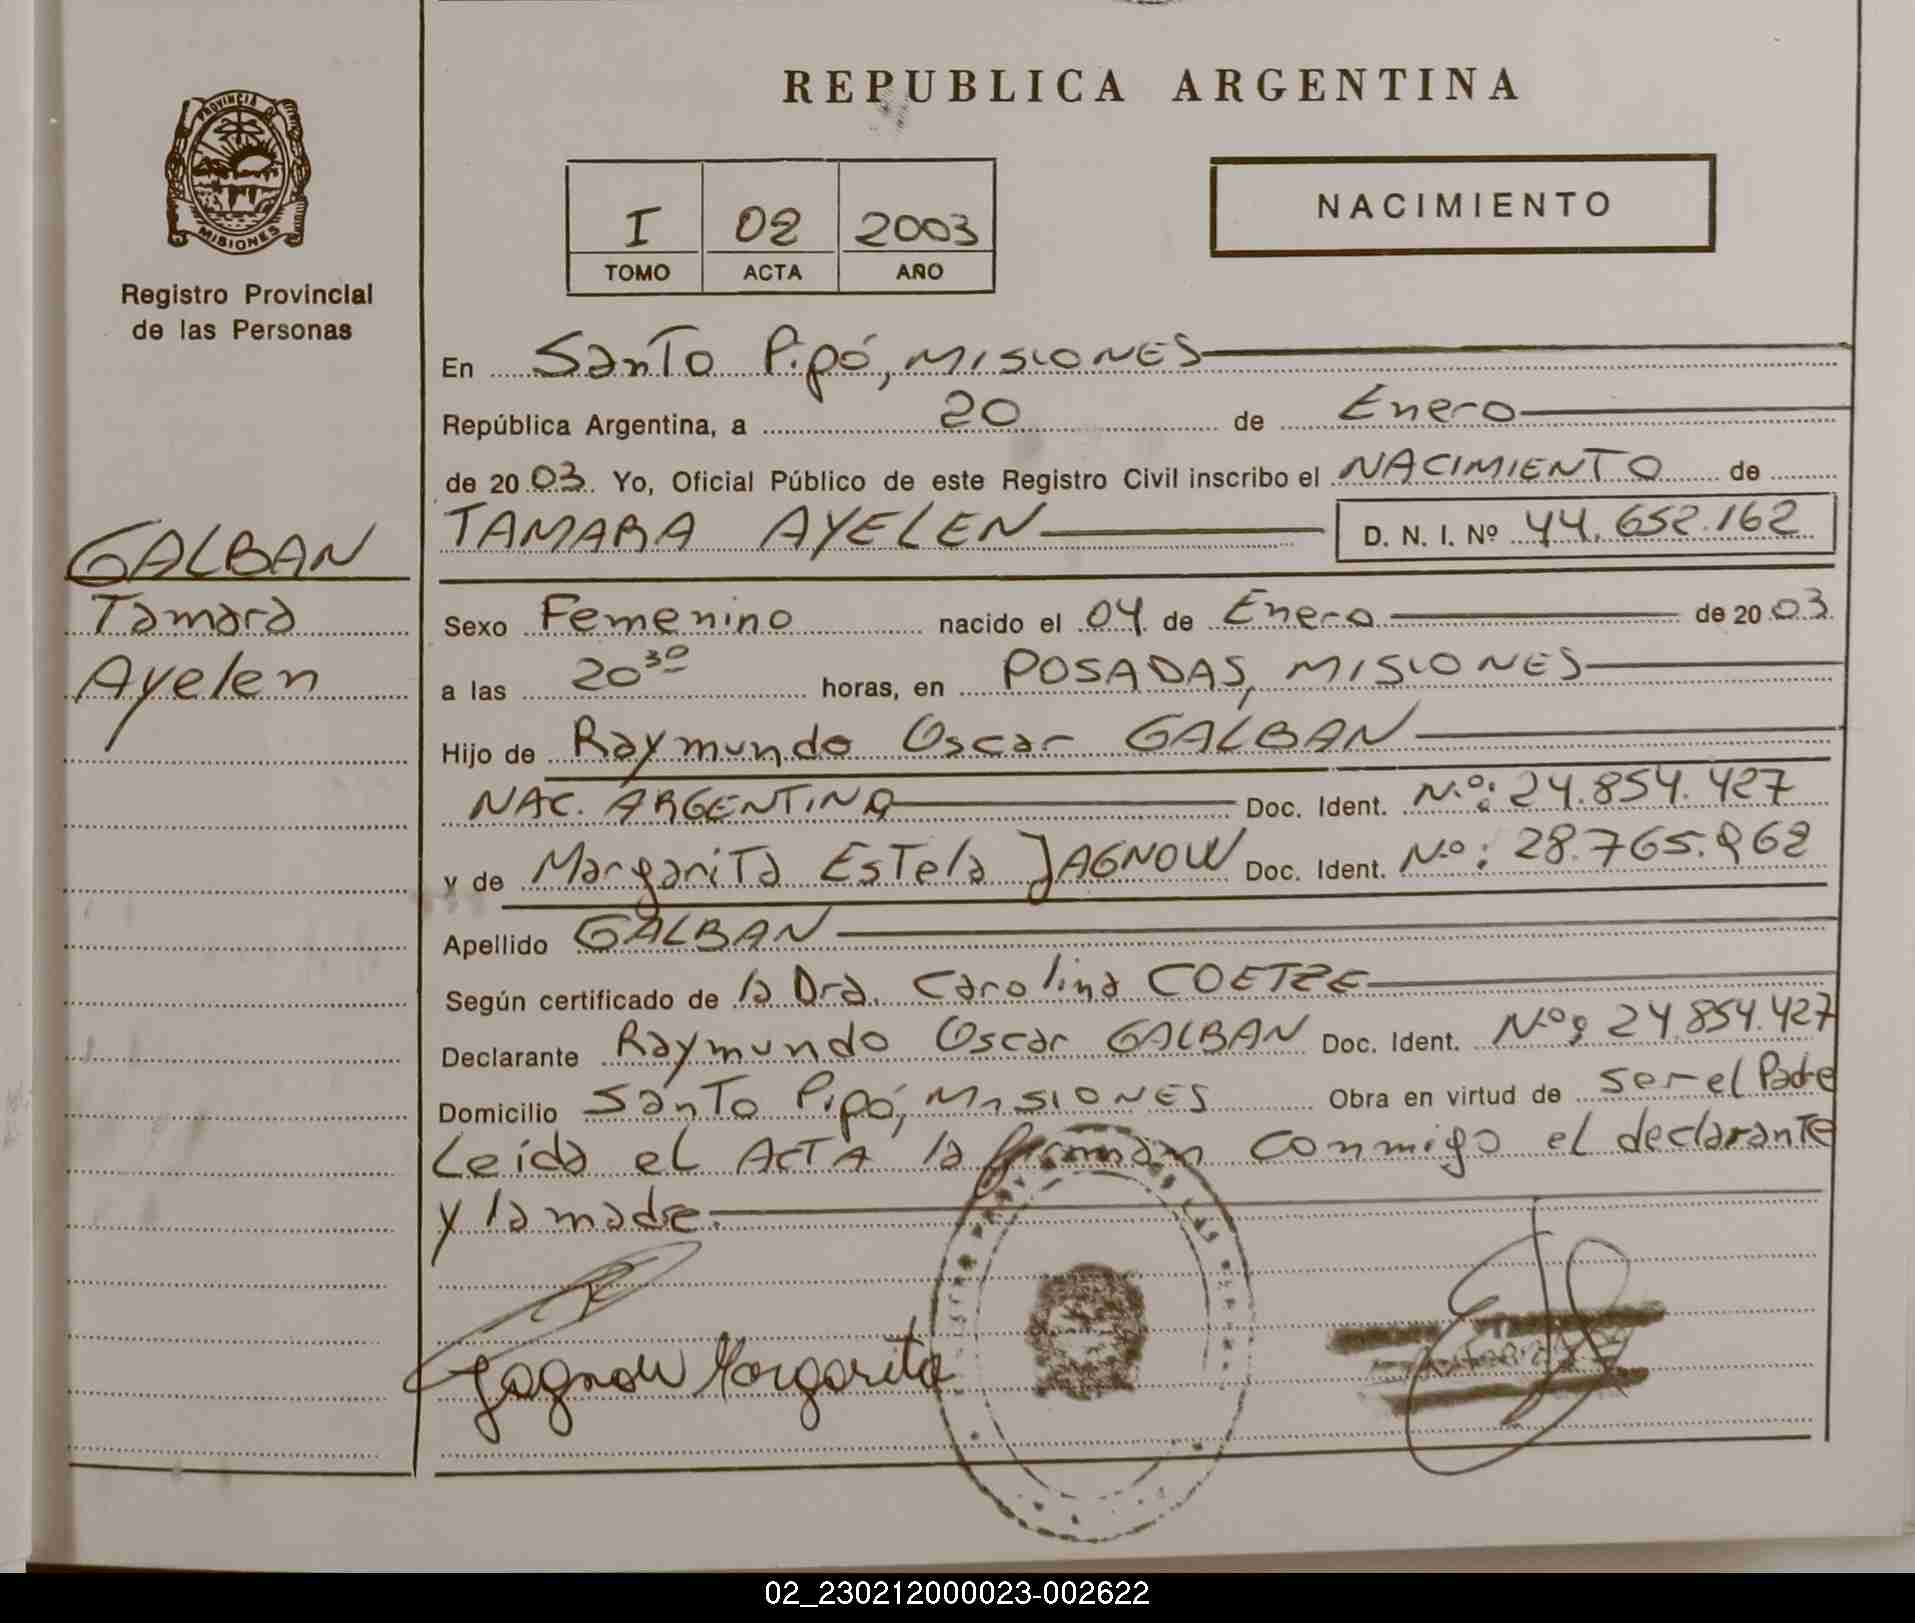 PROVINCIA DE
MISIONES
Registro Provincial
de las Personas
GALBAN
Tamara
Ayelen
REPUBLICA ARGENTINA
I 02 2003
TOMO ACTA AÑO
NACIMIENTO
En Santo Pipó, MISIONES
República Argentina, a 20 de Enero
de 2003. Yo, Oficial Público de este Registro Civil inscribo el NACIMIENTO de
TAMARA AYELEN D. N. I. Nº 44.652.162
Sexo Femenino nacido el 04 de Enero de 2003.
a las 20 30 horas, en POSADAS, MISIONES
Hijo de Raymundo Oscar GALBAN
NAC. ARGENTINA Doc. Ident. N.º: 24.854.427
y de Margarita Estela JAGNOW Doc. Ident. N.º: 28.765.862
Apellido GALBAN
Según certificado de la Dra. Carolina COETZE
Declarante Raymundo Oscar GALBAN Doc. Ident. N.º: 24.854.427
Domicilio Santo Pipó, MISIONES Obra en virtud de ser el Padre
Leída el ACTA la firman conmigo el declarante
y la madre.
Jagnow Margarita
02_230212000023-002622